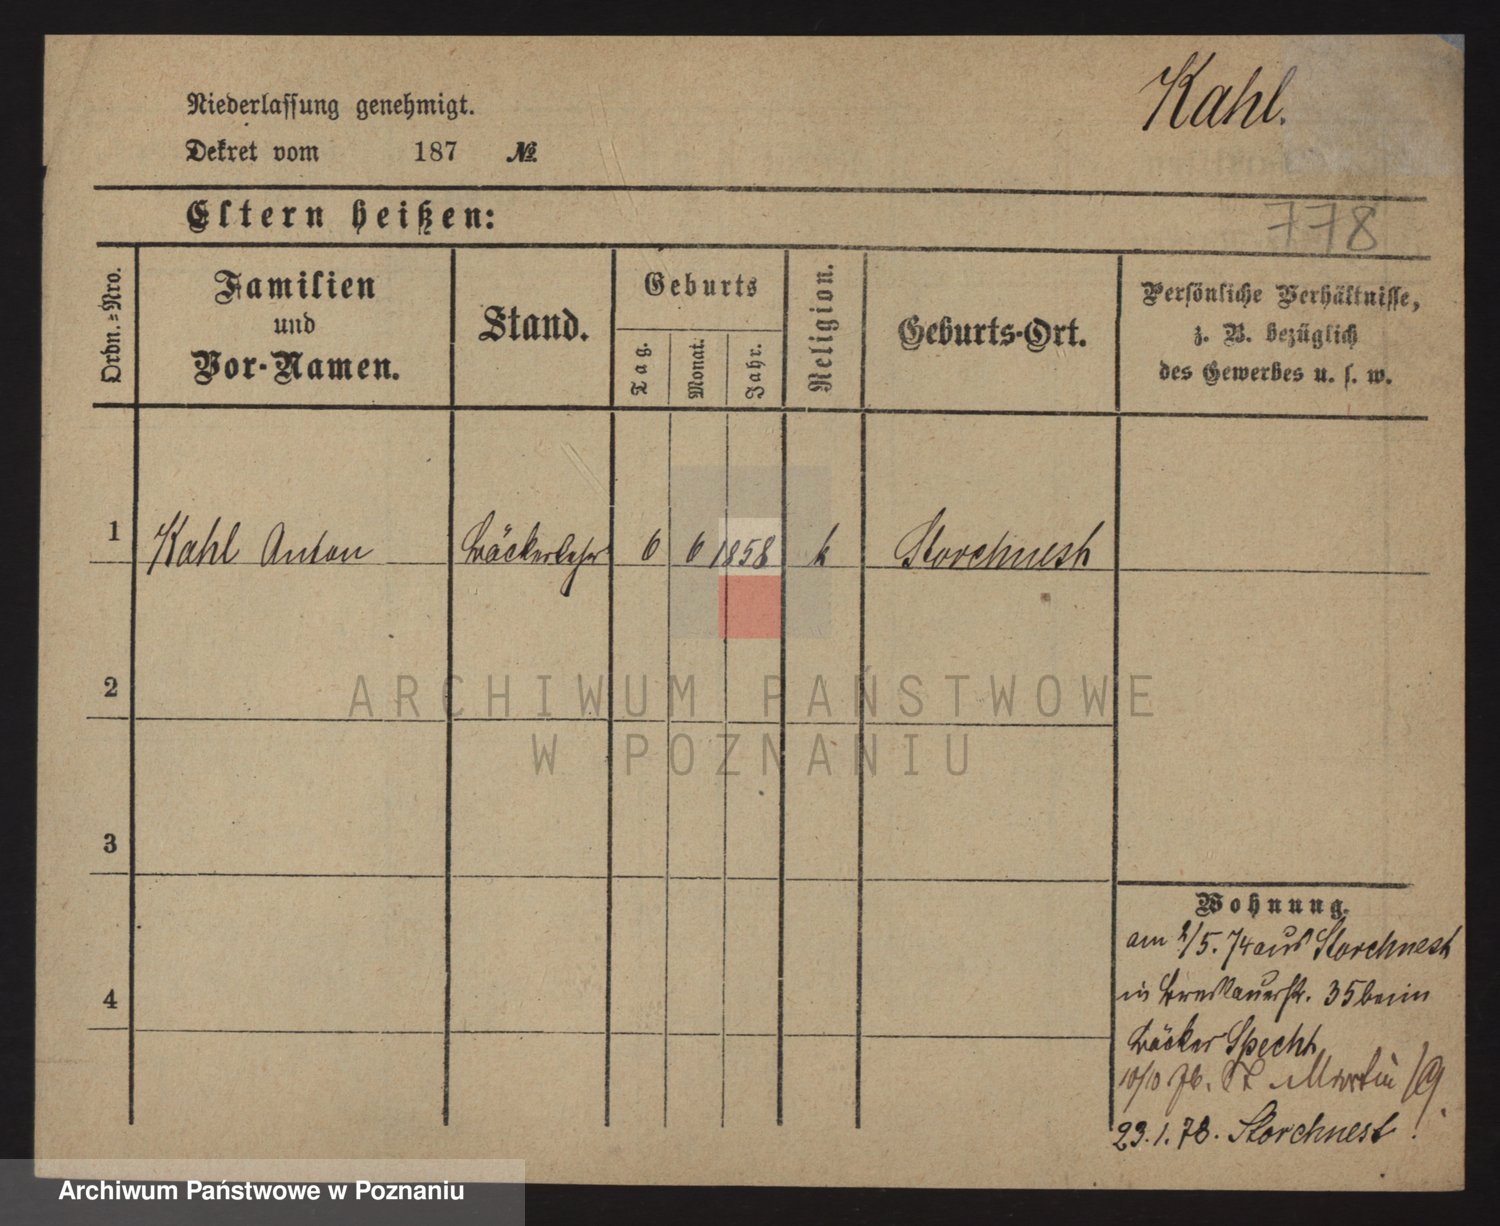 Kahl.
Niederlassung genehmigt.
Dekret vom 187 №
Eltern heißen:
778
Ordn.=Nro.
Familien
und
Vor-Namen.
Stand.
Geburts
Tag.
Monat.
Jahr.
Religion.
Geburts-Ort.
Persönliche Verhältnisse,
z. B. bezüglich
des Gewerbes u. s. w.
1 Kahl Anton Bäckerlehr 6 6 1858 k Storchnest
2
ARCHIWUM PAŃSTWOWE
W POZNANIU
3
4
Wohnung.
am 2/5. 74 aus Storchnest
in Breslauerstr. 35 beim
Bäcker Specht
10/10 76. St Martin 19.
23.1.78. Storchnest!
Archiwum Państwowe w Poznaniu